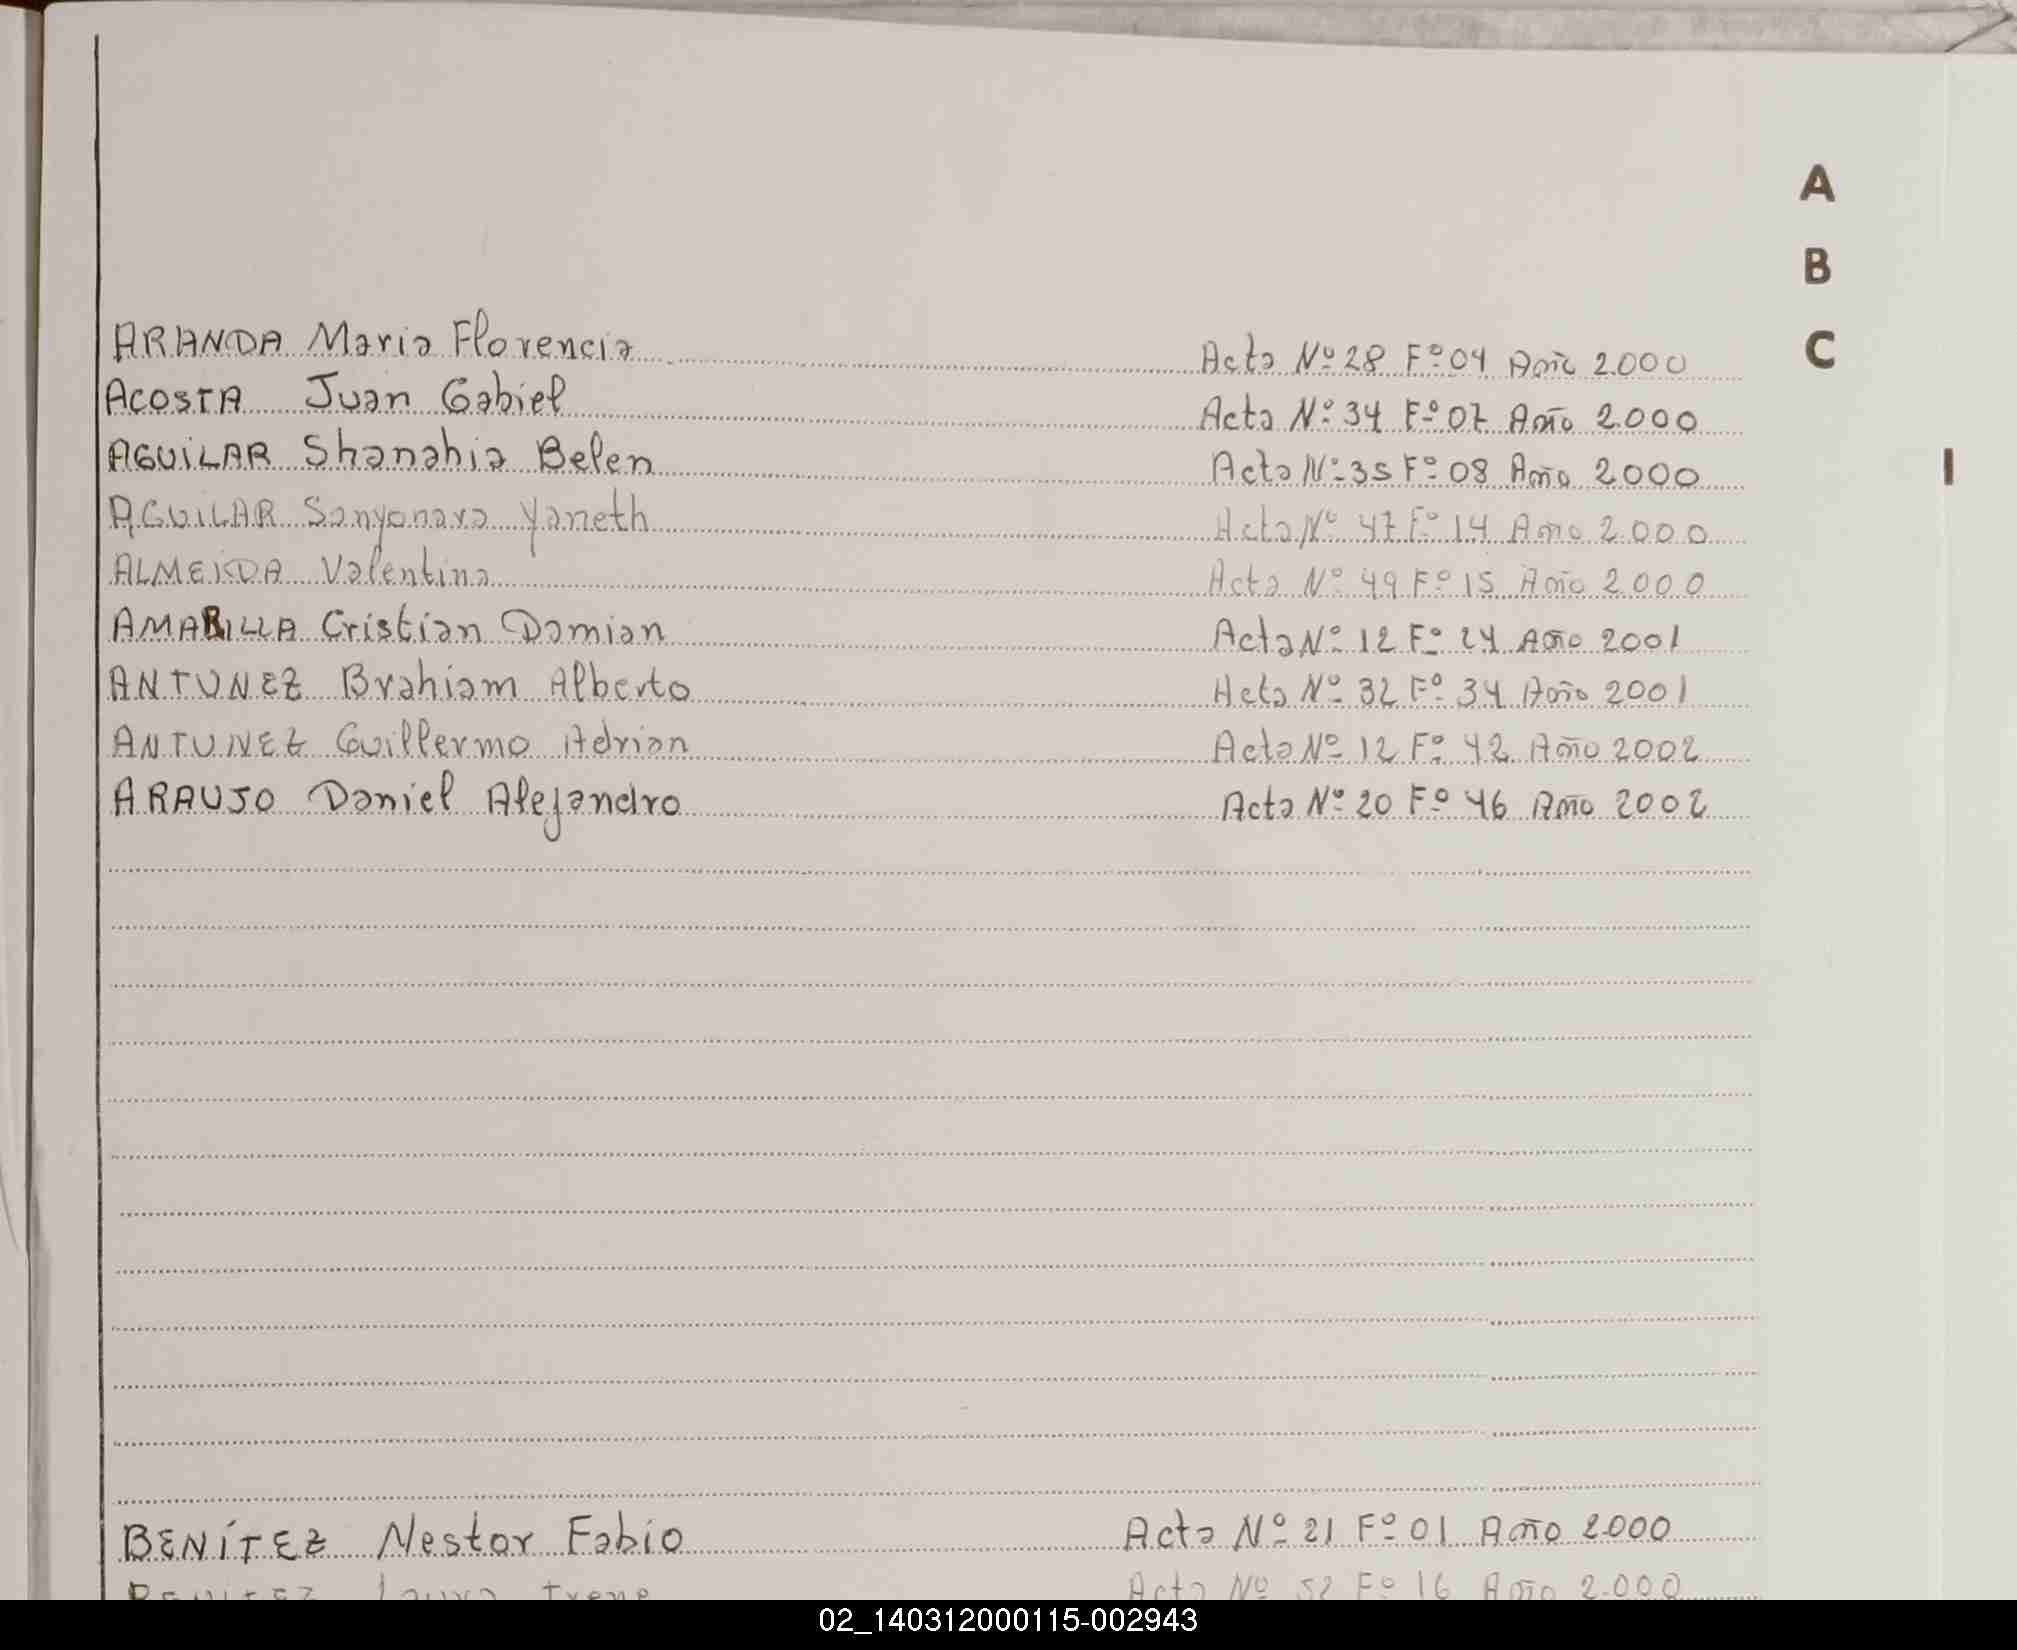 A
B
C
I
ARANDA Maria Florencia Acta Nº 28 Fº 04 Año 2.000
ACOSTA Juan Gabiel Acta Nº 34 Fº 07 Año 2.000
AGUILAR Shanahia Belen Acta Nº 35 Fº 08 Año 2.000
AGUILAR Sanyonara Yaneth Acta Nº 47 Fº 14 Año 2.000
ALMEIDA Valentina Acta Nº 49 Fº 15 Año 2.000
AMARILLA Cristian Damian Acta Nº 12 Fº 24 Año 2001
ANTUNEZ Brahiam Alberto Acta Nº 32 Fº 34 Año 2001
ANTUNEZ Guillermo Adrian Acta Nº 12 Fº 42 Año 2002
ARAUJO Daniel Alejandro Acta Nº 20 Fº 46 Año 2002
BENÍTEZ Nestor Fabio Acta Nº 21 Fº 01 Año 2000
BENITEZ Laura Irene Acta Nº 52 Fº 16 Año 2.000
02_140312000115-002943